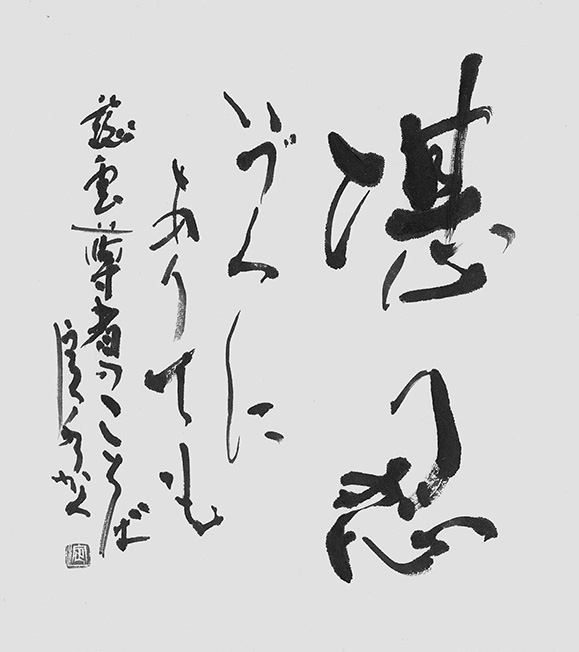 堪忍
いづくに
ありても
慈雲尊者のことば
かく